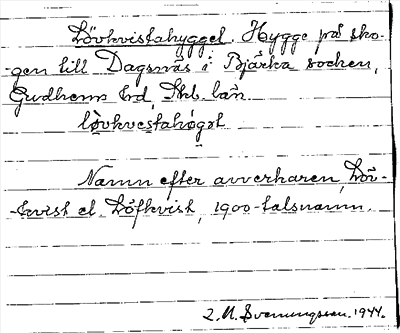 Lövkvistahygget. Hygge på sko-
gen till Dagsnäs i Bjärka socken,
Gudhems hd, Skb. län.
lǫvkvestahøget
Namn efter avverkaren, Löv-
kvist el. Löfkvist, 1900-talsnamn.
L. M. Svenungsson. 1944.